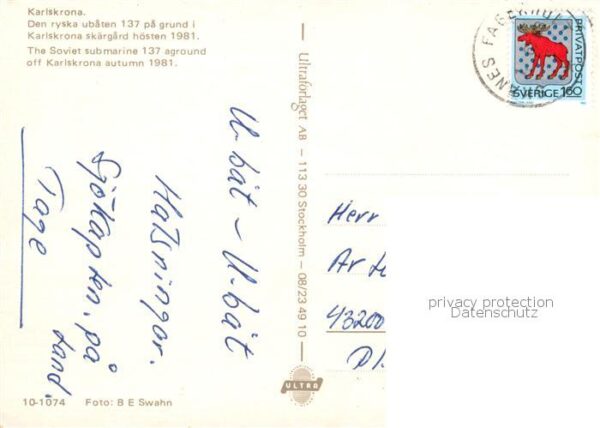 Karlskrona.
Den ryska ubåten 137 på grund i
Karlskrona skärgård hösten 1981.
The Soviet submarine 137 aground
off Karlskrona autumn 1981.
U-båt – U-båt
Hälsningar.
Sjökapten. på
land.
Tage
10-1074 Foto: B E Swahn
Ultraförlaget AB – 113 30 Stockholm – 08/23 49 10
ULTRA
PRIVATPOST
SVERIGE 160
Herr
43200
privacy protection
Datenschutz